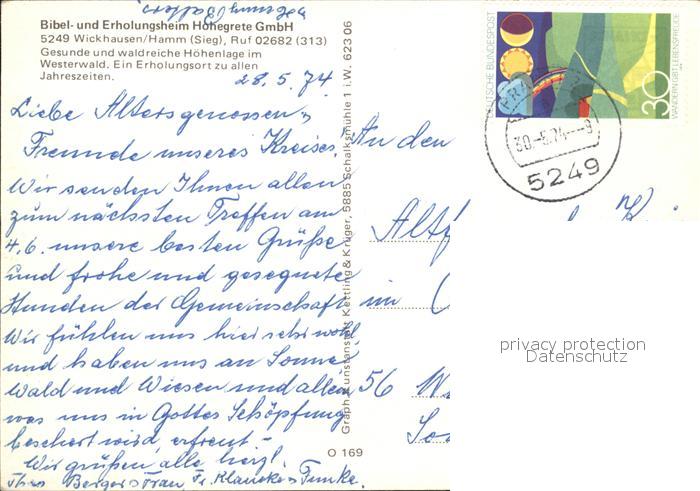 Bibel- und Erholungsheim Hohegrete GmbH
5249 Wickhausen/Hamm (Sieg), Ruf 02682 (313)
Gesunde und waldreiche Höhenlage im
Westerwald. Ein Erholungsort zu allen
Jahreszeiten.
28.5.74.
Liebe Altersgenossen,
Freunde unseres Kreises.
Wir senden Ihnen allen
zum nächsten Treffen am
4.6. unsere besten Grüße
und frohe und gesegnete
Stunden der Gemeinschaft
Wir fühlen uns hier sehr wohl
und haben uns an Sonne
Wald und Wiesen und allem
was uns in Gottes Schöpfung
beschert wird, erfreut.
Wir grüßen alle herzl.
Frau Fr. Klancke Funke.
Graph. Kunstanstalt Kettling & Krüger, 5885 Schalksmühle 1 i.W. 623 06
O 169
An den
im
56
DEUTSCHE BUNDESPOST
30
WANDERN GIBT LEBENSFREUDE
30.-5.74.--9
5249
privacy protection
Datenschutz